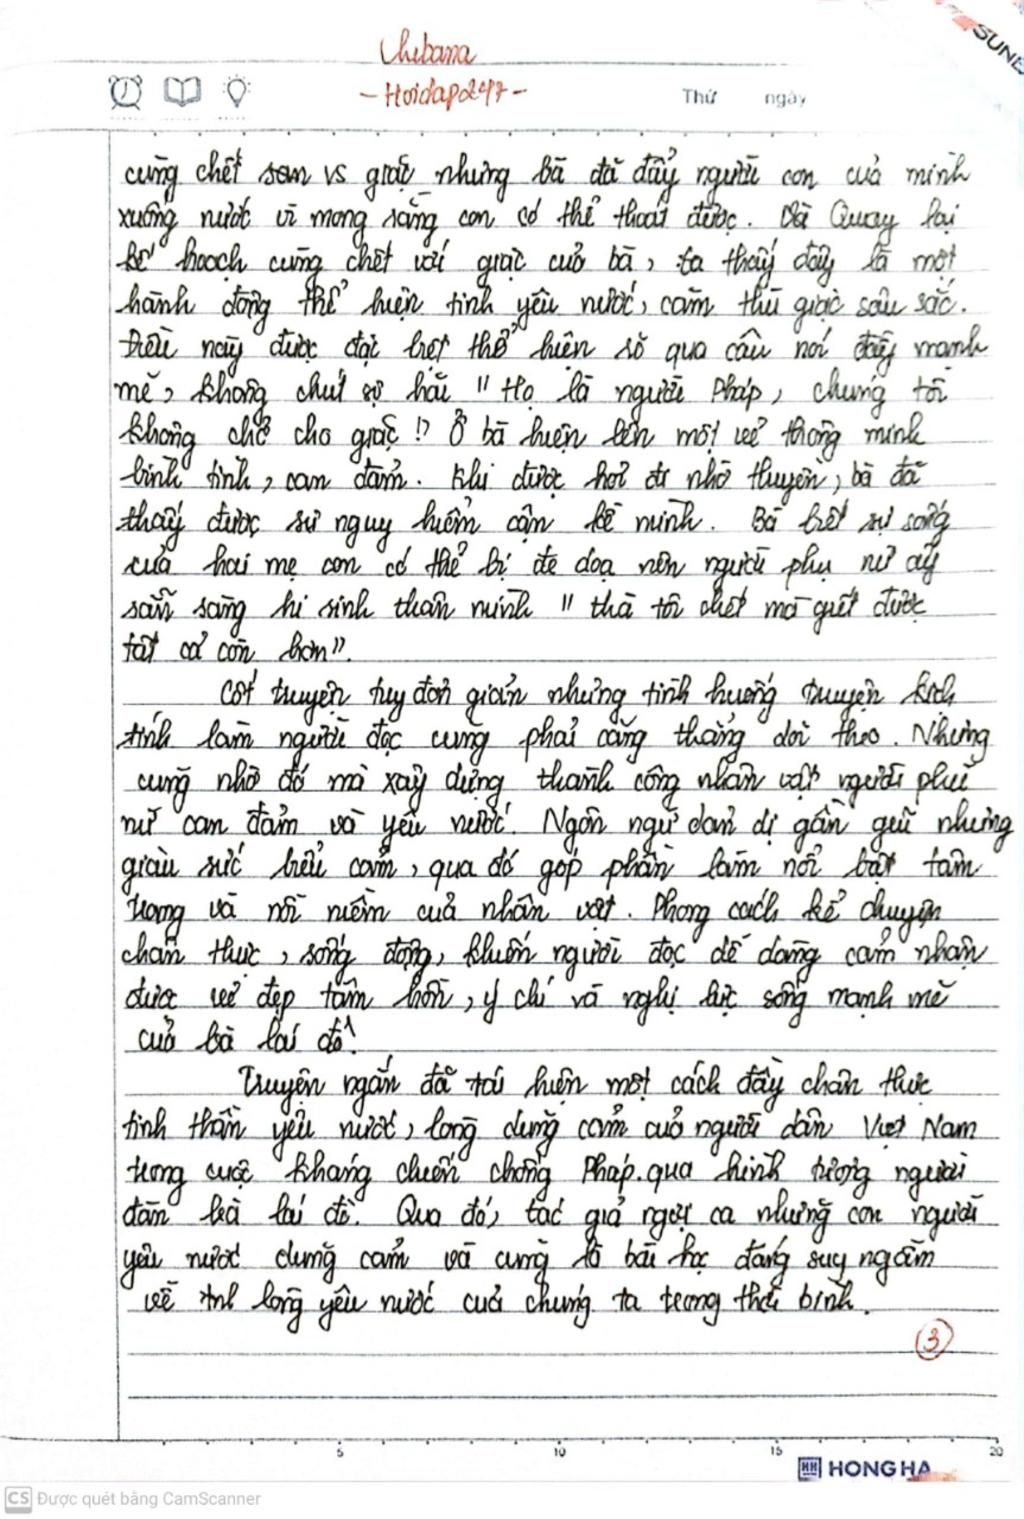 Chibana
- Hoidap247 -
SUNE
Thứ ngày
cùng chết vs giặc nhưng bà đã đẩy người con của mình
xuống nước vì mong rằng con có thể thoát được. Quay lại
kế hoạch cùng chết với giặc của bà, ta thấy đây là một
hành động thể hiện tinh yêu nước, căm thù giặc sâu sắc.
Điều này được đặc biệt thể hiện rõ qua câu nói đầy mạnh
mẽ, không chút sợ hãi " Họ là người Pháp, chúng tôi
không chở cho giặc !? Ở bà hiện lên một vẻ thông minh
bình tĩnh, can đảm. Khi được hỏi đi nhờ thuyền, bà đã
thấy được sự nguy hiểm cận kề mình. Bà biết sự sống
của hai mẹ con có thể bị đe doạ nên người phụ nữ ấy
sẵn sàng hi sinh thân mình " thà tôi chết mà giết được
tất cả còn hơn".
Cốt truyện tuy đơn giản nhưng tình huống truyện kịch
tính làm người đọc cũng phải căng thẳng dõi theo. Nhưng
cũng nhờ đó mà xây dựng thành công nhân vật người phụ
nữ can đảm và yêu nước. Ngôn ngữ dản dị gần gũi nhưng
giàu sức biểu cảm, qua đó góp phần làm nổi bật tâm
trạng và nỗi niềm của nhân vật. Phong cách kể chuyện
chân thực, sống động, khiến người đọc dễ dàng cảm nhận
được vẻ đẹp tâm hồn, ý chí và nghị lực sống mạnh mẽ
của bà lái đò!
Truyện ngắn đã tái hiện một cách đầy chân thực
tinh thần yêu nước, lòng dũng cảm của người dân Việt Nam
trong cuộc kháng chiến chống Pháp qua hình tượng người
đàn bà lái đò. Qua đó, tác giả ngợi ca những con người
yêu nước dũng cảm và cũng là bài học đáng suy ngẫm
về lòng yêu nước của chúng ta trong thời bình.
3
5 10 15 20
HH HONG HA
CS Được quét bằng CamScanner